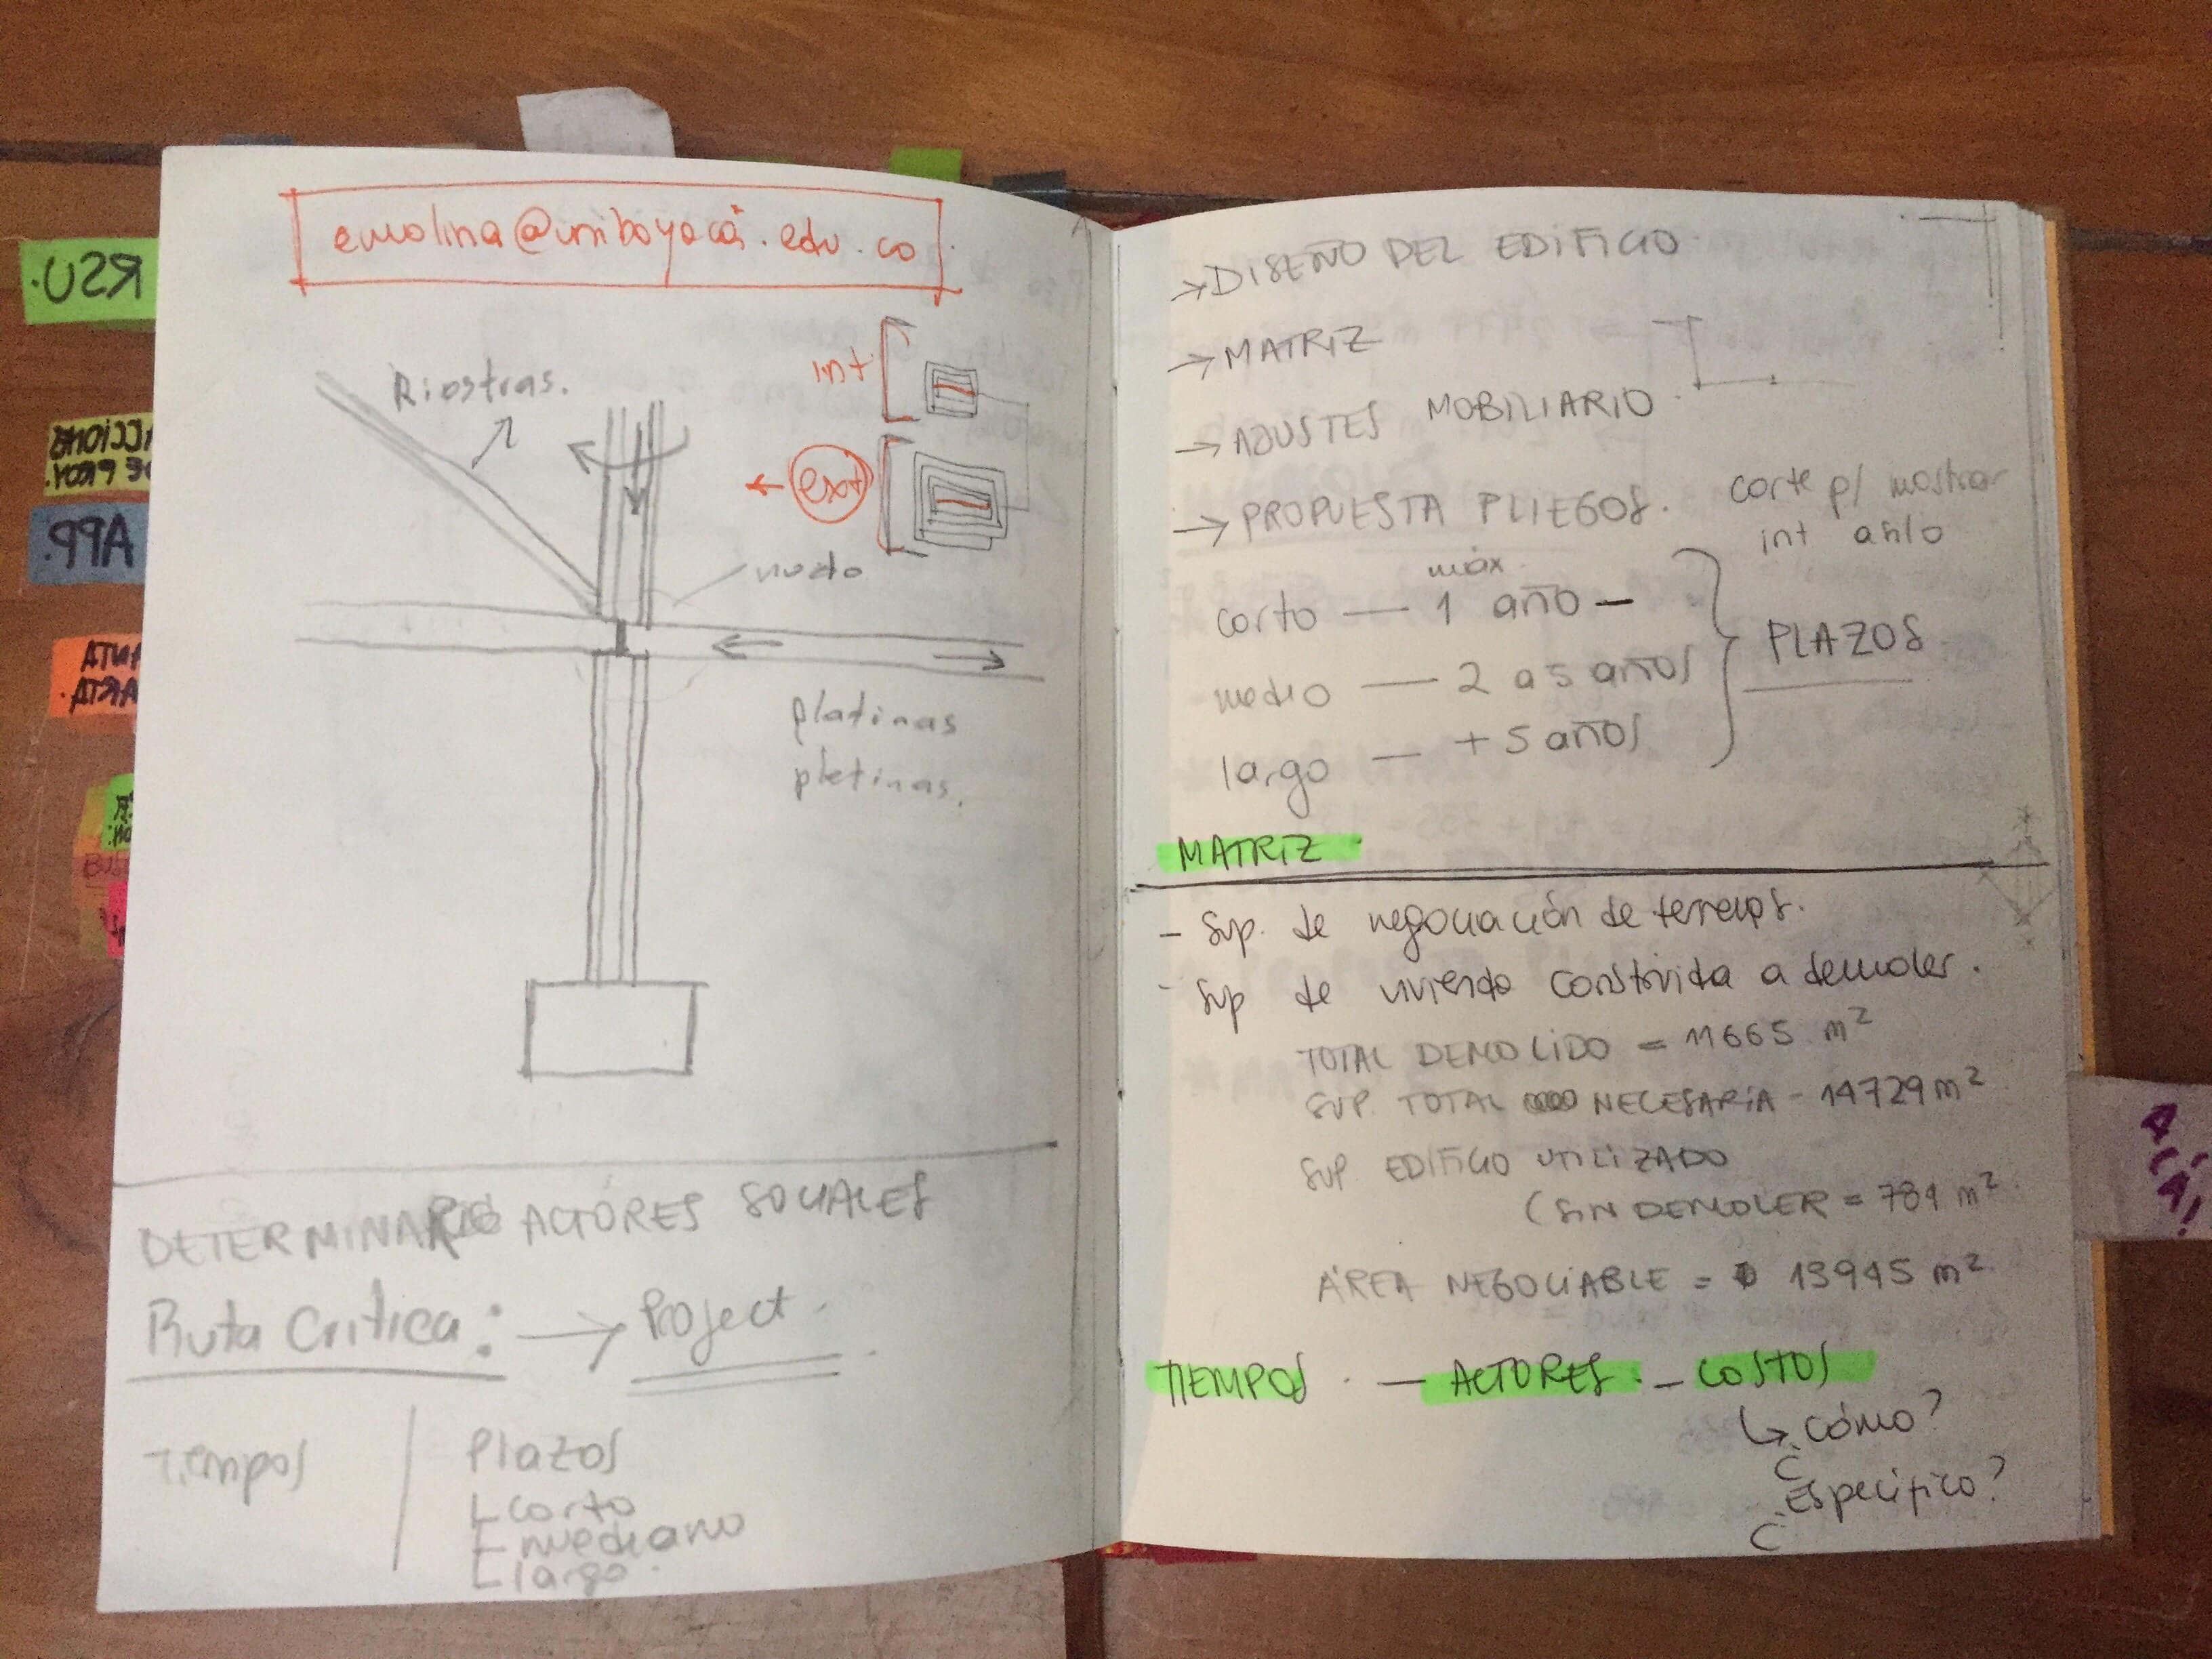 emolina@uniboyacá.edu.co
Riostras.
int
ext
nudo
platinas
pletinas.
DETERMINAR ACTORES SOCIALES
Ruta Crítica: → Project.
Tiempos
Plazos
corto
mediano
largo.
→ DISEÑO DEL EDIFICIO
→ MATRIZ
→ AJUSTES MOBILIARIO
→ PROPUESTA PLIEGOS.
corte p/ mostrar
int
máx
corto — 1 año —
medio — 2 a 5 años
largo — + 5 años
PLAZOS
MATRIZ
- Sup. de negociación de terrenos.
- Sup de vivienda construida a demoler.
TOTAL DEMOLIDO = 11665 m²
SUP. TOTAL NECESARIA - 14729 m²
SUP EDIFICIO UTILIZADO
(SIN DEMOLER = 784 m²
ÁREA NEGOCIABLE = 13945 m²
TIEMPOS - ACTORES - COSTOS
↳ ¿cómo?
¿Específico?
RSU.
APP.
ACÁ!